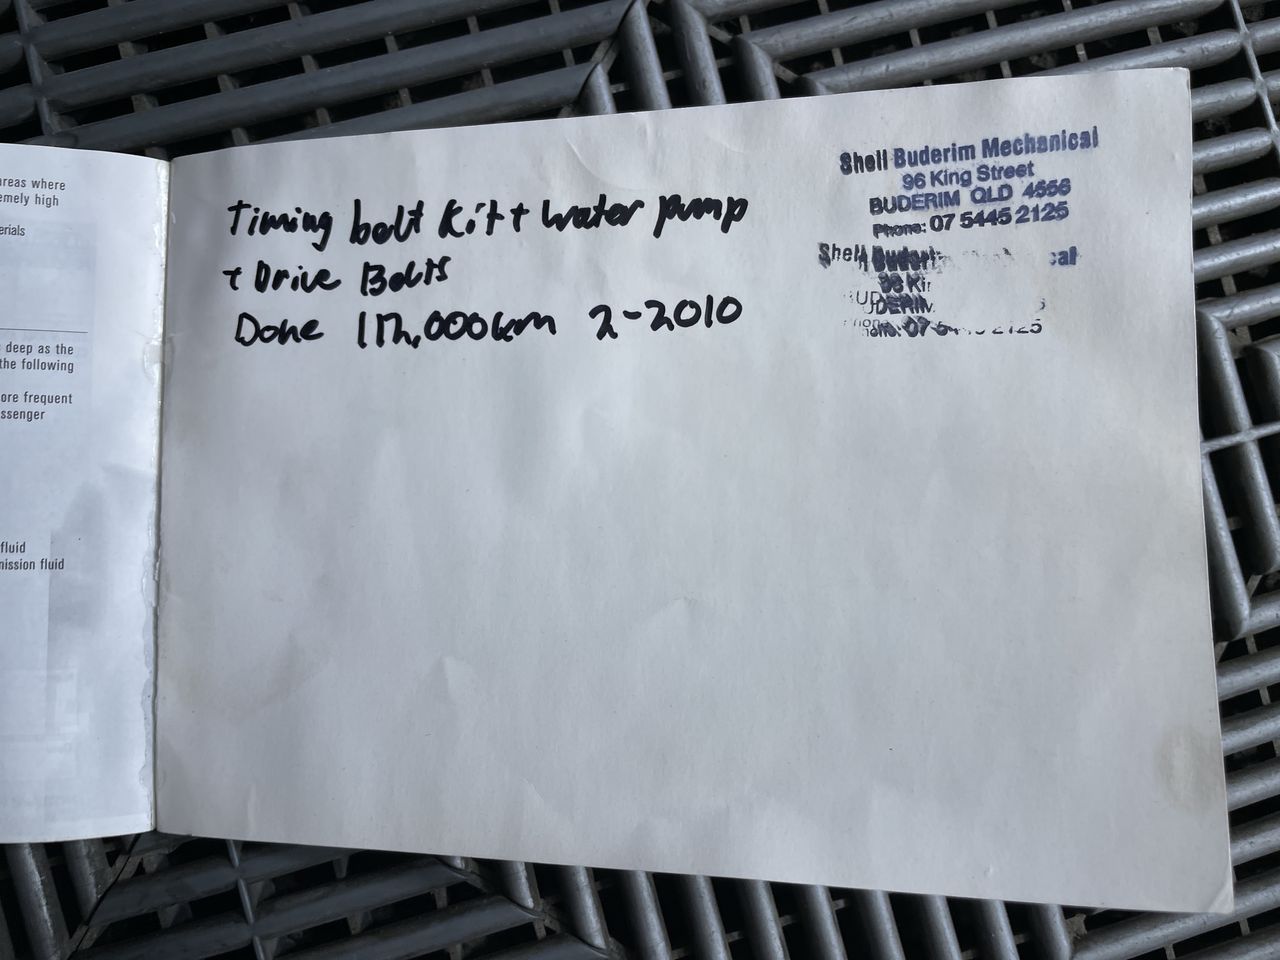 areas where
emely high
erials
deep as the
the following
ore frequent
ssenger
fluid
mission fluid
Timing belt Kit + water pump
+ Drive Belts
Done 172,000km 2-2010
Shell Buderim Mechanical
96 King Street
BUDERIM QLD 4556
Phone: 07 5445 2125
Shell